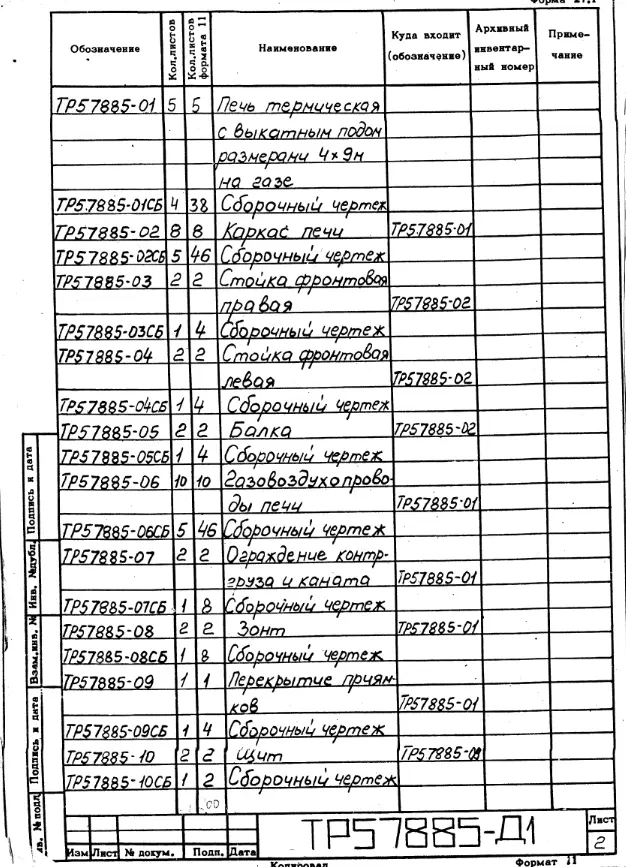 Форма 27.1
Обозначение Кол.листов Кол.листов формата 11 Наименование Куда входит (обозначение) Архивный инвентарный номер Примечание
ТР57885-01 5 5 Печь термическая
с выкатным подом
размерами 4х9м
на газе
ТР57885-01СБ 4 38 Сборочный чертеж
ТР57885-02 8 8 Каркас печи ТР57885-01
ТР57885-02СБ 5 46 Сборочный чертеж
ТР57885-03 2 2 Стойка фронтовая
правая ТР57885-02
ТР57885-03СБ 1 4 Сборочный чертеж
ТР57885-04 2 2 Стойка фронтовая
левая ТР57885-02
ТР57885-04СБ 1 4 Сборочный чертеж
ТР57885-05 2 2 Балка ТР57885-02
ТР57885-05СБ 1 4 Сборочный чертеж
ТР57885-06 10 10 Газовоздухопрово-
ды печи ТР57885-01
ТР57885-06СБ 5 46 Сборочный чертеж
ТР57885-07 2 2 Ограждение контр-
груза и каната ТР57885-01
ТР57885-07СБ 1 8 Сборочный чертеж
ТР57885-08 2 2 Зонт ТР57885-01
ТР57885-08СБ 1 8 Сборочный чертеж
ТР57885-09 1 1 Перекрытие приям-
ков ТР57885-01
ТР57885-09СБ 1 4 Сборочный чертеж
ТР57885-10 2 2 Щит ТР57885-09
ТР57885-10СБ 1 2 Сборочный чертеж
Подпись и дата
Инв. №дубл.
Взам.инв. №
Подпись и дата
Инв. № подл.
Изм Лист № докум. Подп. Дата
ТР57885-Д1
Лист
2
Копировал Формат 11